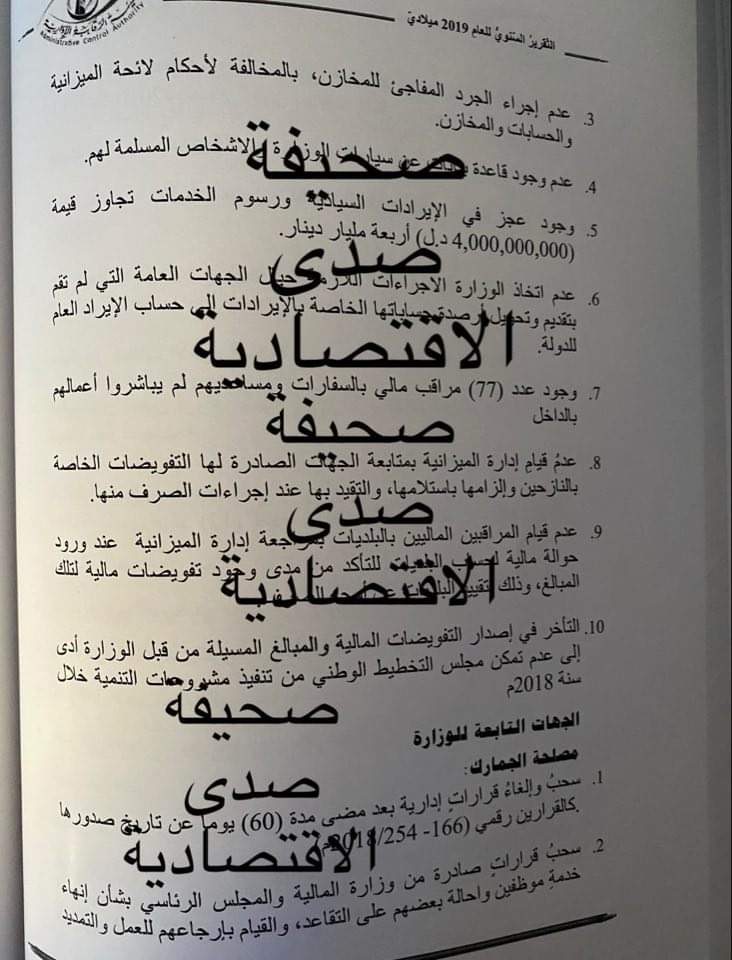 Administrative Control Authority
التقرير السنوي للعام 2019 ميلادي
3. عدم إجراء الجرد المفاجئ للمخازن، بالمخالفة لأحكام لائحة الميزانية
والحسابات والمخازن.
4. عدم وجود قاعدة بيانات عن سيارات الوزارة والاشخاص المسلمة لهم.
5. وجود عجز في الإيرادات السيادية ورسوم الخدمات تجاوز قيمة
(4,000,000,000 د.ل) أربعة مليار دينار.
6. عدم اتخاذ الوزارة الاجراءات اللازمة حيال الجهات العامة التي لم تقم
بتقديم وتحويل أرصدة حساباتها الخاصة بالإيرادات إلى حساب الإيراد العام
للدولة.
7. وجود عدد (77) مراقب مالي بالسفارات ومساعديهم لم يباشروا أعمالهم
بالداخل
8. عدمُ قيامِ إدارة الميزانية بمتابعة الجهات الصادرة لها التفويضات الخاصة
بالنازحين وإلزامها باستلامها، والتقيد بها عند إجراءات الصرف منها.
9. عدم قيام المراقبين الماليين بالبلديات بمراجعة إدارة الميزانية عند ورود
حوالة مالية لحساب البلديات للتأكد من مدى وجود تفويضات مالية لتلك
المبالغ، وذلك
10. التأخر في إصدار التفويضات المالية والمبالغ المسيلة من قبل الوزارة أدى
إلى عدم تمكن مجلس التخطيط الوطني من تنفيذ مشروعات التنمية خلال
سنة 2018م
الجهات التابعة للوزارة
مصلحة الجمارك:
1. سحبُ وإلغاءُ قراراتٍ إدارية بعد مضي مدة (60) يوما عن تاريخ صدورها
كالقرارين رقمي (166- 2018/254م).
2. سحبُ قراراتٍ صادرة من وزارة المالية والمجلس الرئاسي بشأن إنهاء
خدمةِ موظفين واحالة بعضهم على التقاعد، والقيام بإرجاعهم للعمل والتمديد
صحيفة
صدى
الاقتصادية
صحيفة
صدى
الاقتصادية
صحيفة
صدى
الاقتصادية